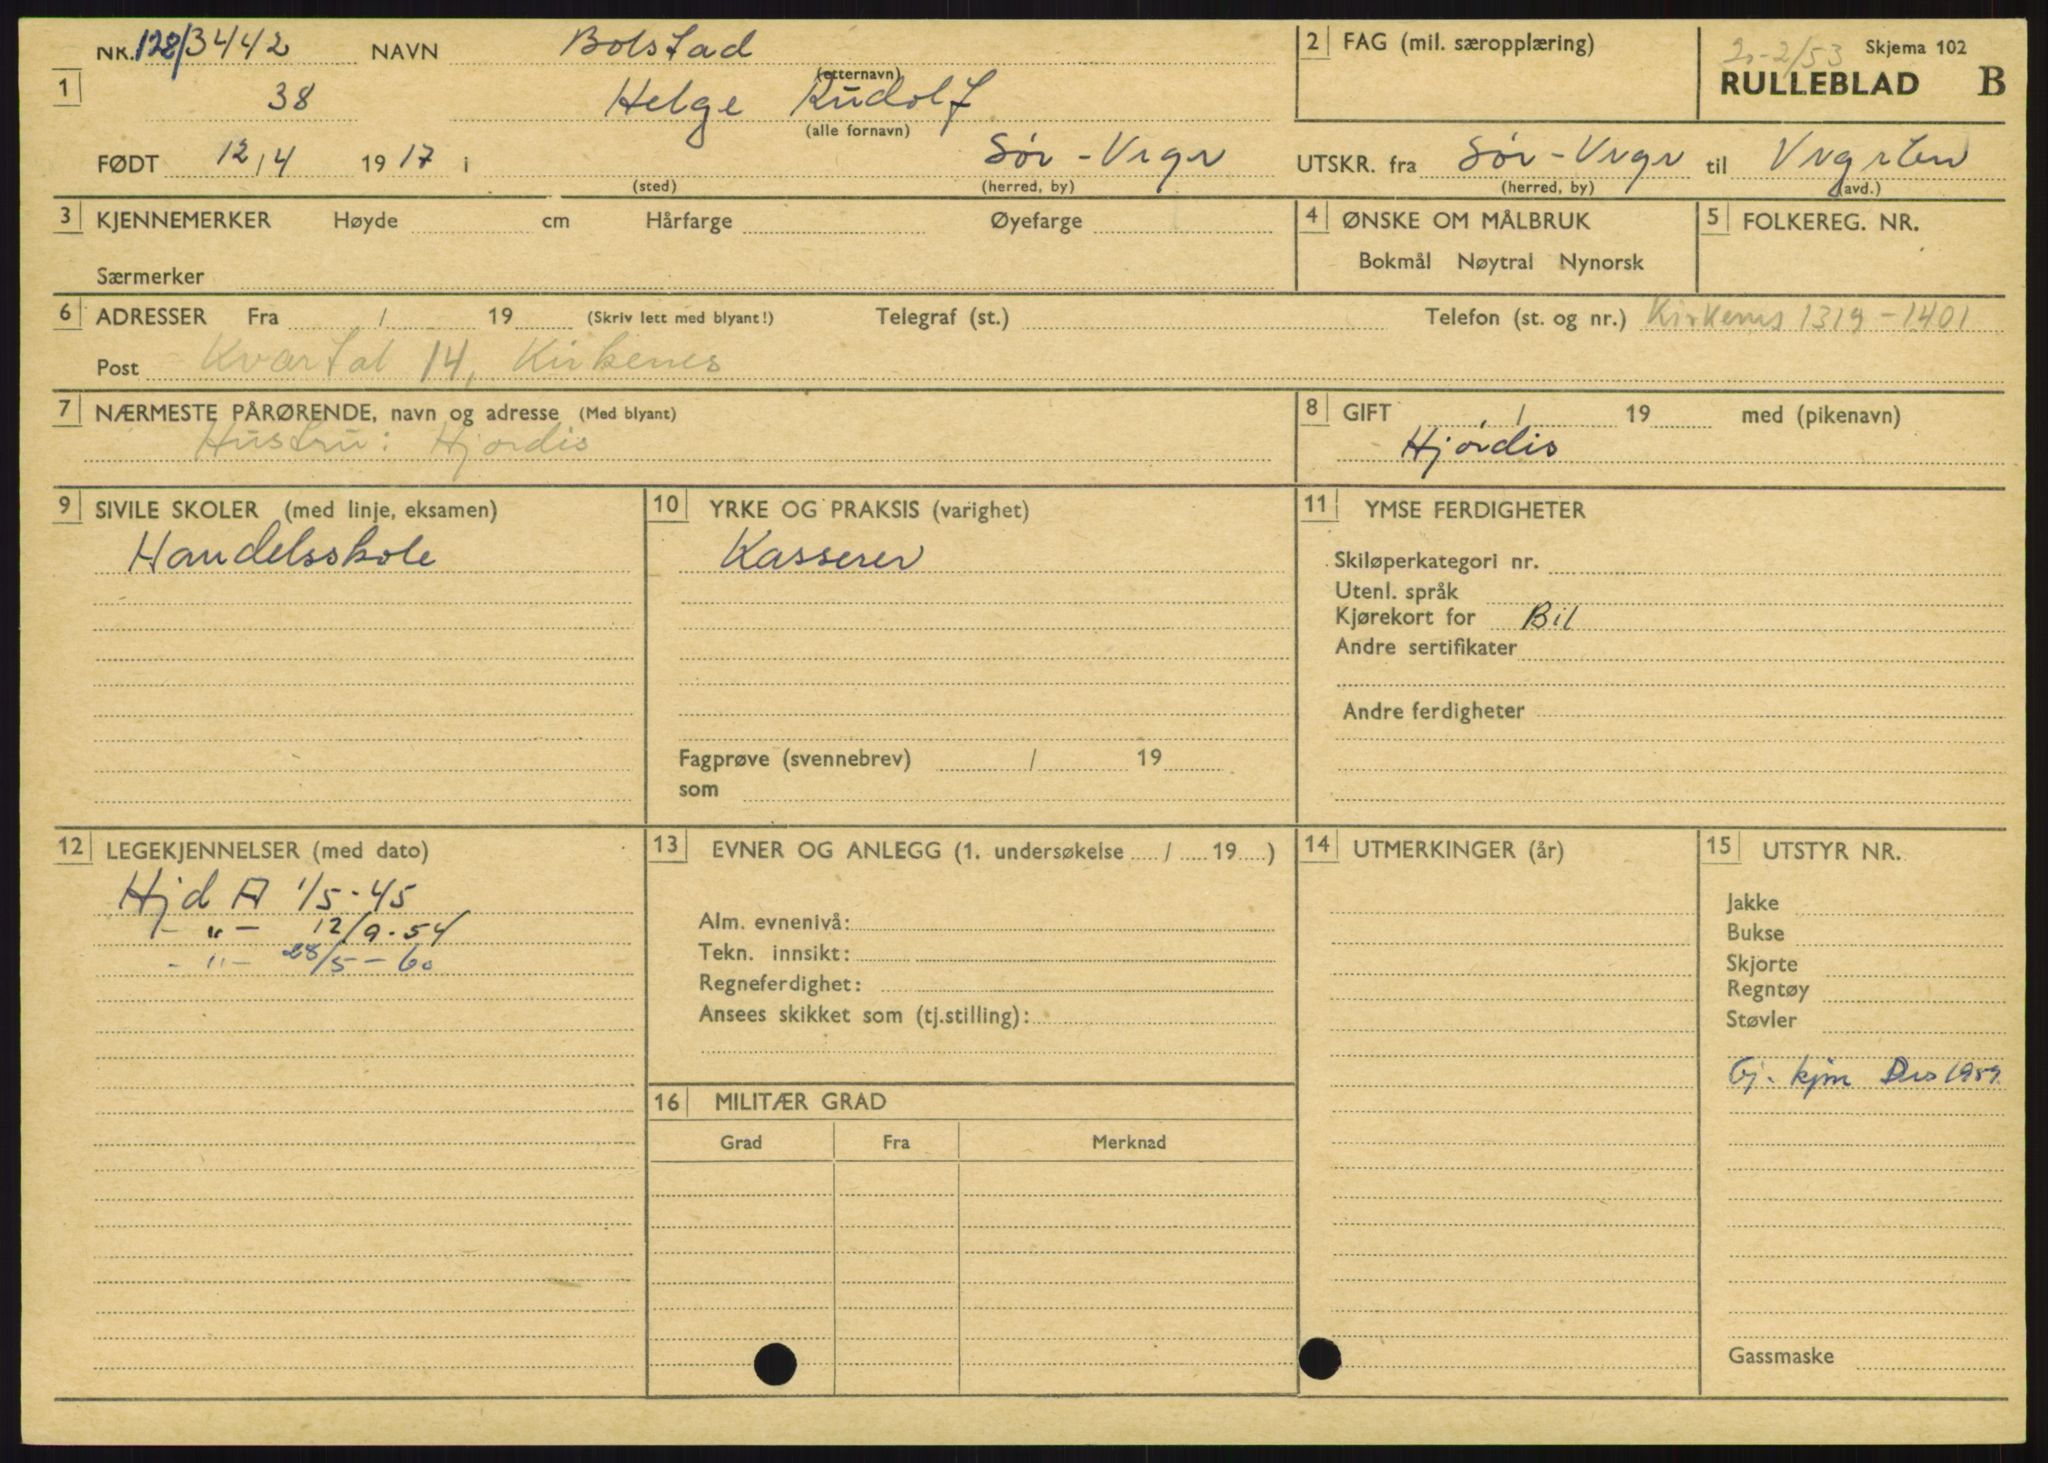 NR. 128/3442 NAVN Bolstad
(etternavn)
1 38 Helge Rudolf
(alle fornavn)
FØDT 12/4 1917 i Sør-Vrgr
(sted) (herred, by)
2 FAG (mil. særopplæring)
20-2/53 Skjema 102
RULLEBLAD B
UTSKR. fra Sør-Vrgr til
(herred, by) (avd.)
3 KJENNEMERKER Høyde cm Hårfarge Øyefarge
Særmerker
4 ØNSKE OM MÅLBRUK
Bokmål Nøytral Nynorsk
5 FOLKEREG. NR.
6 ADRESSER Fra / 19 (Skriv lett med blyant!) Telegraf (st.) Telefon (st. og nr.) Kirkenes 1319-1401
Post Kvartal 14, Kirkenes
7 NÆRMESTE PÅRØRENDE, navn og adresse (Med blyant)
Hustru: Hjørdis
8 GIFT / 19 med (pikenavn)
Hjørdis
9 SIVILE SKOLER (med linje, eksamen)
Handelsskole
10 YRKE OG PRAKSIS (varighet)
Kasserer
Fagprøve (svennebrev) / 19
som
11 YMSE FERDIGHETER
Skiløperkategori nr.
Utenl. språk
Kjørekort for Bil
Andre sertifikater
Andre ferdigheter
12 LEGEKJENNELSER (med dato)
Hjd A 1/5-45
- " - 12/9-54
- " - 28/5-60
13 EVNER OG ANLEGG (1. undersøkelse / 19 )
Alm. evnenivå:
Tekn. innsikt:
Regneferdighet:
Ansees skikket som (tj.stilling):
14 UTMERKINGER (år)
15 UTSTYR NR.
Jakke
Bukse
Skjorte
Regntøy
Støvler
Gj. kjm Des 1959
Gassmaske
16 MILITÆR GRAD
Grad Fra Merknad